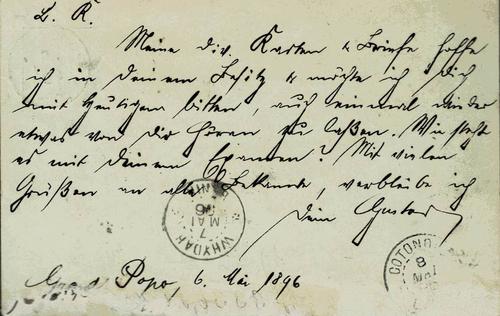 L. K.
Meine div. Karten & Briefe hoffe
ich in Deinem Besitz & möchte ich Dich
mit Heutigem bitten, auch einmal wieder
etwas von Dir hören zu laßen. Wie steht
es mit Deinem Examen? Mit vielen
Grüßen an alle Bekannte, verbleibe ich
Dein Gustav
WHYDAH
7
MAI
96
BENIN
COTONOU
8
MAI
Grand Popo, 6. Mai 1896